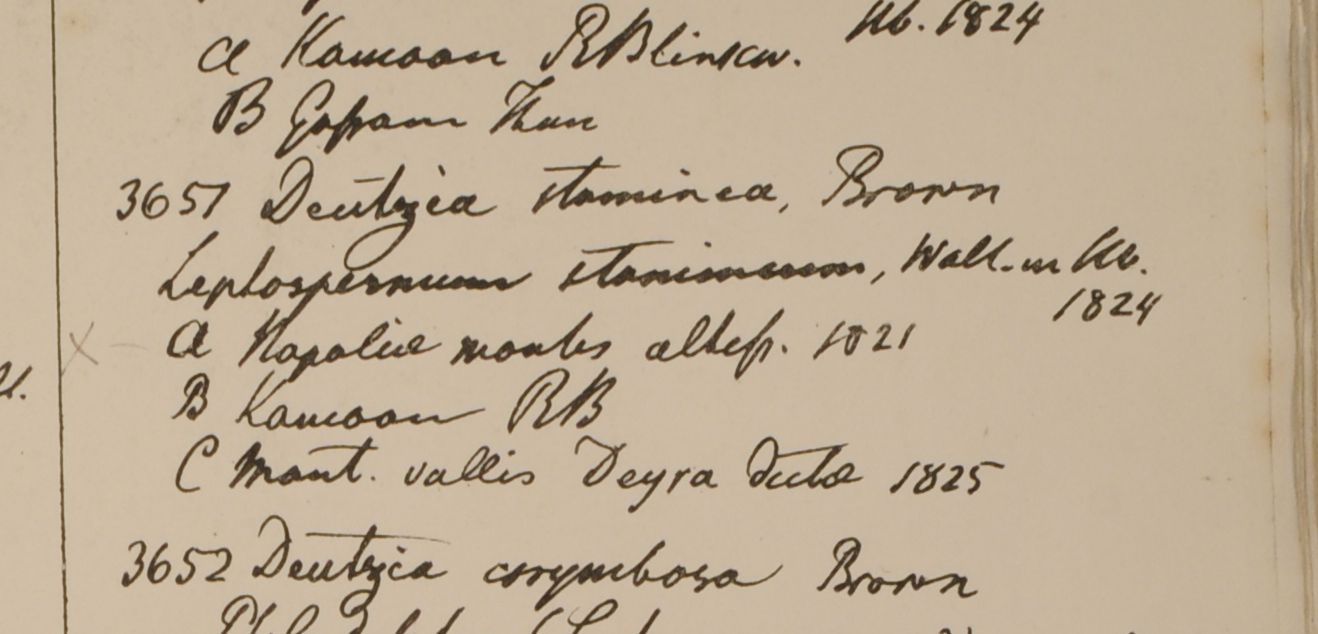 Hb. 1824
a Kamaon RBlinkw.
B Gossam Than
3651 Deutzia staminea, Brown
Leptospermum stamineum, Wall. in Hb.
1824
a Napaliæ montes altess. 1821
B Kamaon RB
C Mont. vallis Deyra Dula 1825
3652 Deutzia corymbosa Brown